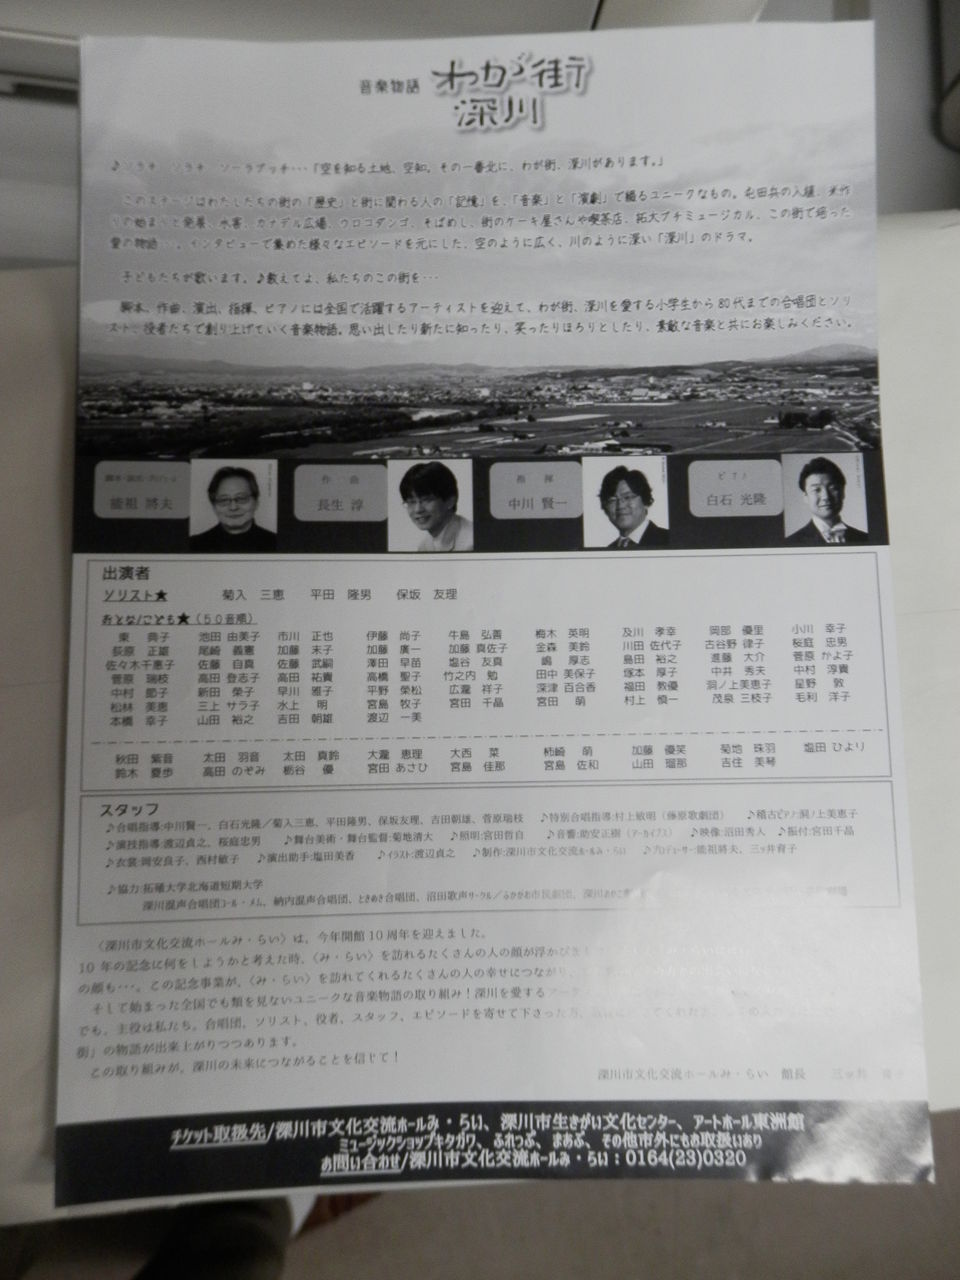 音楽物語 わが街
深川
♪ソラチ ソラチ ソーラプッチ･･･「空を知る土地、空知。その一番北に、わが街、深川があります。」
このステージはわたしたちの街の「歴史」と街に関わる人の「記憶」を、「音楽」と「演劇」で綴るユニークなもの。屯田兵の入植、米作
りの始まりと発展、水害、カナデル広場、ウロコダンゴ、そばめし、街のケーキ屋さんや喫茶店、拓大プチミュージカル、この街で培った
愛の物語･･･。インタビューで集めた様々なエピソードを元にした、空のように広く、川のように深い「深川」のドラマ。
子どもたちが歌います。♪教えてよ、私たちのこの街を･･･
脚本、作曲、演出、指揮、ピアノには全国で活躍するアーティストを迎えて、わが街、深川を愛する小学生から80代までの合唱団とソリ
スト、役者たちで創り上げていく音楽物語。思い出したり新たに知ったり、笑ったりほろりとしたり、素敵な音楽と共にお楽しみください。
能祖 將夫
作曲
長生 淳
指揮
中川 賢一
ピアノ
白石 光隆
出演者
ソリスト★ 菊入 三恵 平田 隆男 保坂 友理
おとな/こども★（50音順）
東 典子 池田 由美子 市川 正也 伊藤 尚子 牛島 弘善 梅木 英明 及川 孝幸 岡部 優里 小川 幸子
荻原 正雄 尾崎 義憲 加藤 末子 加藤 廣一 加藤 真佐子 金森 美鈴 川田 佐代子 古谷野 律子 桜庭 忠男
佐々木千恵子 佐藤 自真 佐藤 武嗣 澤田 早苗 塩谷 友真 嶋 厚志 島田 裕之 進藤 大介 菅原 かよ子
菅原 瑞枝 高田 登志子 高田 祐貴 高橋 聖子 竹之内 勉 田中 美保子 塚本 厚子 中井 秀夫 中村 淳貴
中村 節子 新田 榮子 早川 雅子 平野 榮松 広瀧 祥子 深津 百合香 福田 教優 洞ノ上美恵子 星野 敦
松林 美恵 三上 サラ子 水上 明 宮島 牧子 宮田 千晶 宮田 萌 村上 慎一 茂泉 三枝子 毛利 洋子
本橋 幸子 山田 裕之 吉田 朝雄 渡辺 一美
秋田 紫音 太田 羽音 太田 真鈴 大瀧 恵理 大西 菜 柿崎 萌 加藤 優笑 菊地 珠羽 塩田 ひより
鈴木 夏歩 高田 のぞみ 栃谷 優 宮田 あさひ 宮島 佳那 宮島 佐和 山田 瑠那 吉住 美琴
スタッフ
♪合唱指導:中川賢一、白石光隆／菊入三恵、平田隆男、保坂友理、吉田朝雄、菅原瑞枝 ♪特別合唱指導:村上敏明（藤原歌劇団） ♪稽古ピアノ:洞ノ上美恵子
♪演技指導:渡辺貞之、桜庭忠男 ♪舞台美術・舞台監督:菊地清大 ♪照明:宮田哲自 ♪音響:助安正樹（アーカイブス） ♪映像:沼田秀人 ♪振付:宮田千晶
♪衣裳:岡安良子、西村敏子 ♪演出助手:塩田美香 ♪イラスト:渡辺貞之 ♪制作:深川市文化交流ホールみ・らい ♪プロデューサー:能祖將夫、三ッ井育子
♪協力:拓殖大学北海道短期大学
深川混声合唱団コール・メム、納内混声合唱団、ときめき合唱団、沼田歌声サークル／ふかがわ市民劇団、深川
〈深川市文化交流ホールみ・らい〉は、今年開館10周年を迎えました。
10年の記念に何をしようかと考えた時、〈み・らい〉を訪れるたくさんの人の顔が浮かび
の顔も･･･。この記念事業が、〈み・らい〉を訪れてくれるたくさんの人の幸せにつながり、
そして始まった全国でも類を見ないユニークな音楽物語の取り組み！深川を愛する
でも、主役は私たち。合唱団、ソリスト、役者、スタッフ、エピソードを寄せて下さった方、
街」の物語が出来上がりつつあります。
この取り組みが、深川の未来につながることを信じて！
深川市文化交流ホールみ・らい 館長 三ッ井
チケット取扱先/深川市文化交流ホールみ・らい、深川市生きがい文化センター、アートホール東洲館
ミュージックショップキタガワ、ふれっぷ、まあぶ、その他市外にもお取扱いあり
お問い合わせ/深川市文化交流ホールみ・らい：0164(23)0320